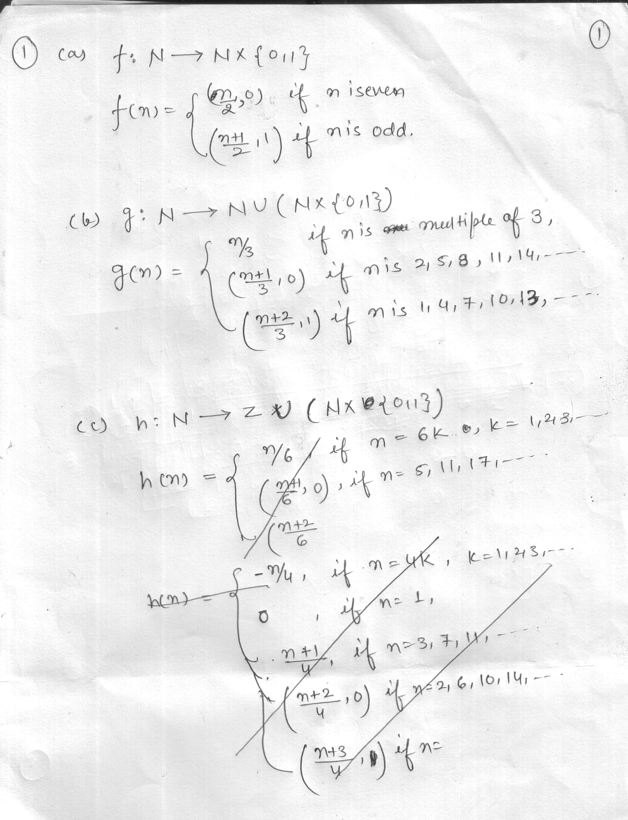 1
① (a) f: N → N×{0,1}
f(n) = { (n/2, 0) if n is even
((n+1)/2, 1) if n is odd.
(b) g: N → N∪(N×{0,1})
g(n) = { n/3 if n is multiple of 3,
((n+1)/3, 0) if n is 2, 5, 8, 11, 14, ----
((n+2)/3, 1) if n is 1, 4, 7, 10, 13, ----
(c) h: N → Z ∪ (N×{0,1})
h(n) = { n/6, if n = 6k, k = 1,2,3,---
((n+1)/6, 0), if n = 5, 11, 17, ----
((n+2)/6
h(n) = { -n/4, if n = 4k, k = 1,2,3,---
0, if n = 1,
(n+1)/4, if n = 3, 7, 11, ----
((n+2)/4, 0) if n = 2, 6, 10, 14, ---
((n+3)/4, 1) if n =